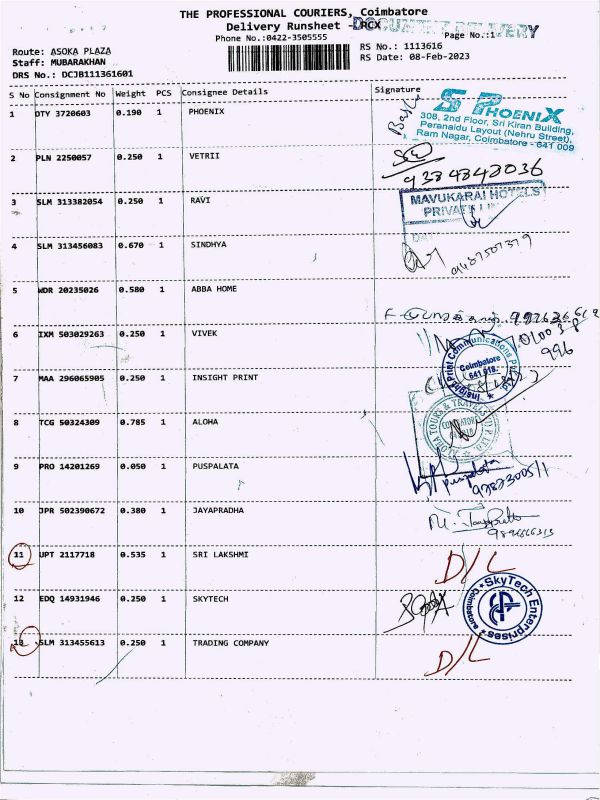 THE PROFESSIONAL COURIERS, Coimbatore
Delivery Runsheet - DRCX
DOCUMENT DELIVERY
Phone No.:0422-3505555
Page No.:1
Route: ASOKA PLAZA
Staff: MUBARAKHAN
DRS No.: DCJB111361601
RS No.: 1113616
RS Date: 08-Feb-2023
S No Consignment No Weight PCS Consignee Details Signature
1 DTY 3720603 0.190 1 PHOENIX
S PHOENIX
308, 2nd Floor, Sri Kiran Building,
Peranaidu Layout (Nehru Street),
Ram Nagar, Coimbatore - 641 009
2 PLN 2250057 0.250 1 VETRII
9384848036
3 SLM 313382054 0.250 1 RAVI
MAVUKARAI HOTELS
PRIVATE
4 SLM 313456083 0.670 1 SINDHYA
9487507379
5 WDR 20235026 0.580 1 ABBA HOME
6 IXM 503029263 0.250 1 VIVEK
996
7 MAA 296065905 0.250 1 INSIGHT PRINT
Insight Print Communications Pvt Ltd
Coimbatore
641 018.
8 TCG 50324309 0.785 1 ALOHA
ALOHA TOURS & TRAVELS (I) P LTD
9 PRO 14201269 0.050 1 PUSPALATA
Puspalata
10 JPR 502390672 0.380 1 JAYAPRADHA
11 UPT 2117718 0.535 1 SRI LAKSHMI
D/L
12 EDQ 14931946 0.250 1 SKYTECH
SkyTech Enterprises
Coimbatore
13 SLM 313455613 0.250 1 TRADING COMPANY
D/L